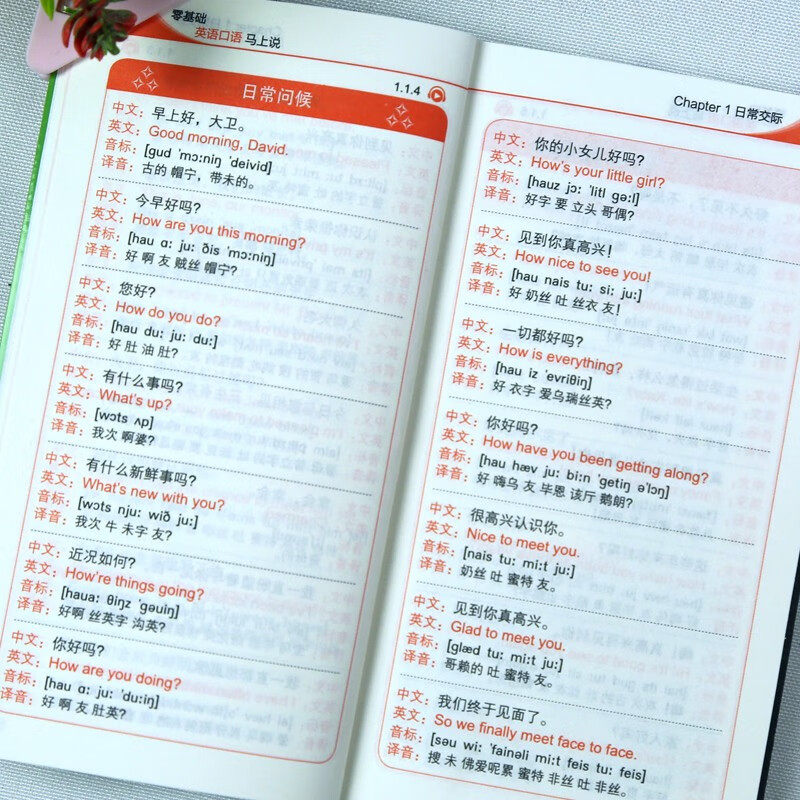 零基础
英语口语 马上说
1.1.4
日常问候
中文：早上好，大卫。
英文：Good morning, David.
音标：[gud 'mɔ:niŋ 'deivid]
译音：古的 帽宁，带未的。
中文：今早好吗？
英文：How are you this morning?
音标：[hau ɑ: ju: ðis 'mɔ:niŋ]
译音：好 啊 友 贼丝 帽宁？
中文：您好？
英文：How do you do?
音标：[hau du: ju: du:]
译音：好 肚 油 肚？
中文：有什么事吗？
英文：What's up?
音标：[wɔts ʌp]
译音：我次 啊婆？
中文：有什么新鲜事吗？
英文：What's new with you?
音标：[wɔts nju: wið ju:]
译音：我次 牛 未字 友？
中文：近况如何？
英文：How're things going?
音标：[hauə: θiŋz 'gəuiŋ]
译音：好啊 丝英字 沟英？
中文：你好吗？
英文：How are you doing?
音标：[hau ɑ: ju: 'du:iŋ]
译音：好 啊 友 肚英？
Chapter 1 日常交际
中文：你的小女儿好吗？
英文：How's your little girl?
音标：[hauz jɔ: 'litl gə:l]
译音：好字 要 立头 哥偶？
中文：见到你真高兴！
英文：How nice to see you!
音标：[hau nais tu: si: ju:]
译音：好 奶丝 吐 丝衣 友！
中文：一切都好吗？
英文：How is everything?
音标：[hau iz 'evriθiŋ]
译音：好 衣字 爱乌瑞丝英？
中文：你好吗？
英文：How have you been getting along?
音标：[hau hæv ju: bi:n 'getiŋ ə'lɔŋ]
译音：好 嗨乌 友 毕恩 该厅 鹅朗？
中文：很高兴认识你。
英文：Nice to meet you.
音标：[nais tu: mi:t ju:]
译音：奶丝 吐 蜜特 友。
中文：见到你真高兴。
英文：Glad to meet you.
音标：[glæd tu: mi:t ju:]
译音：哥赖的 吐 蜜特 友。
中文：我们终于见面了。
英文：So we finally meet face to face.
音标：[səu wi: 'fainəli mi:t feis tu: feis]
译音：搜 未 佛爱呢累 蜜特 非丝 吐 非丝。